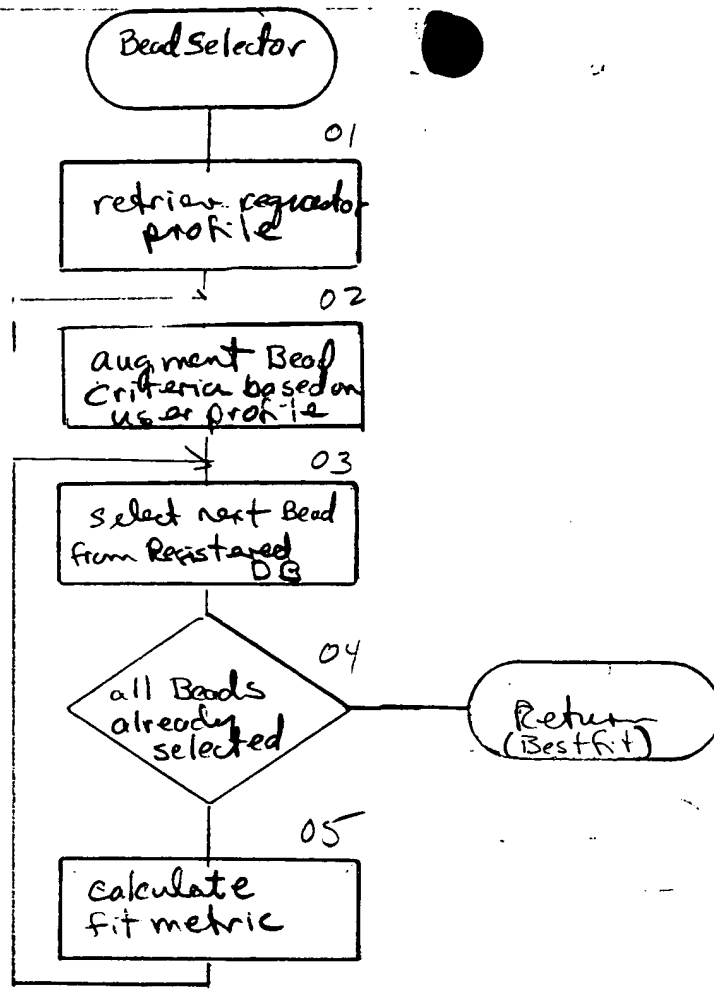 Bead Selector
01
retriev requestor
profile
02
augment Bead
Criteria based on
user profile
03
select next Bead
from Registered
DB
04
all Beads
already
selected
Return
(Bestfit)
05
calculate
fit metric